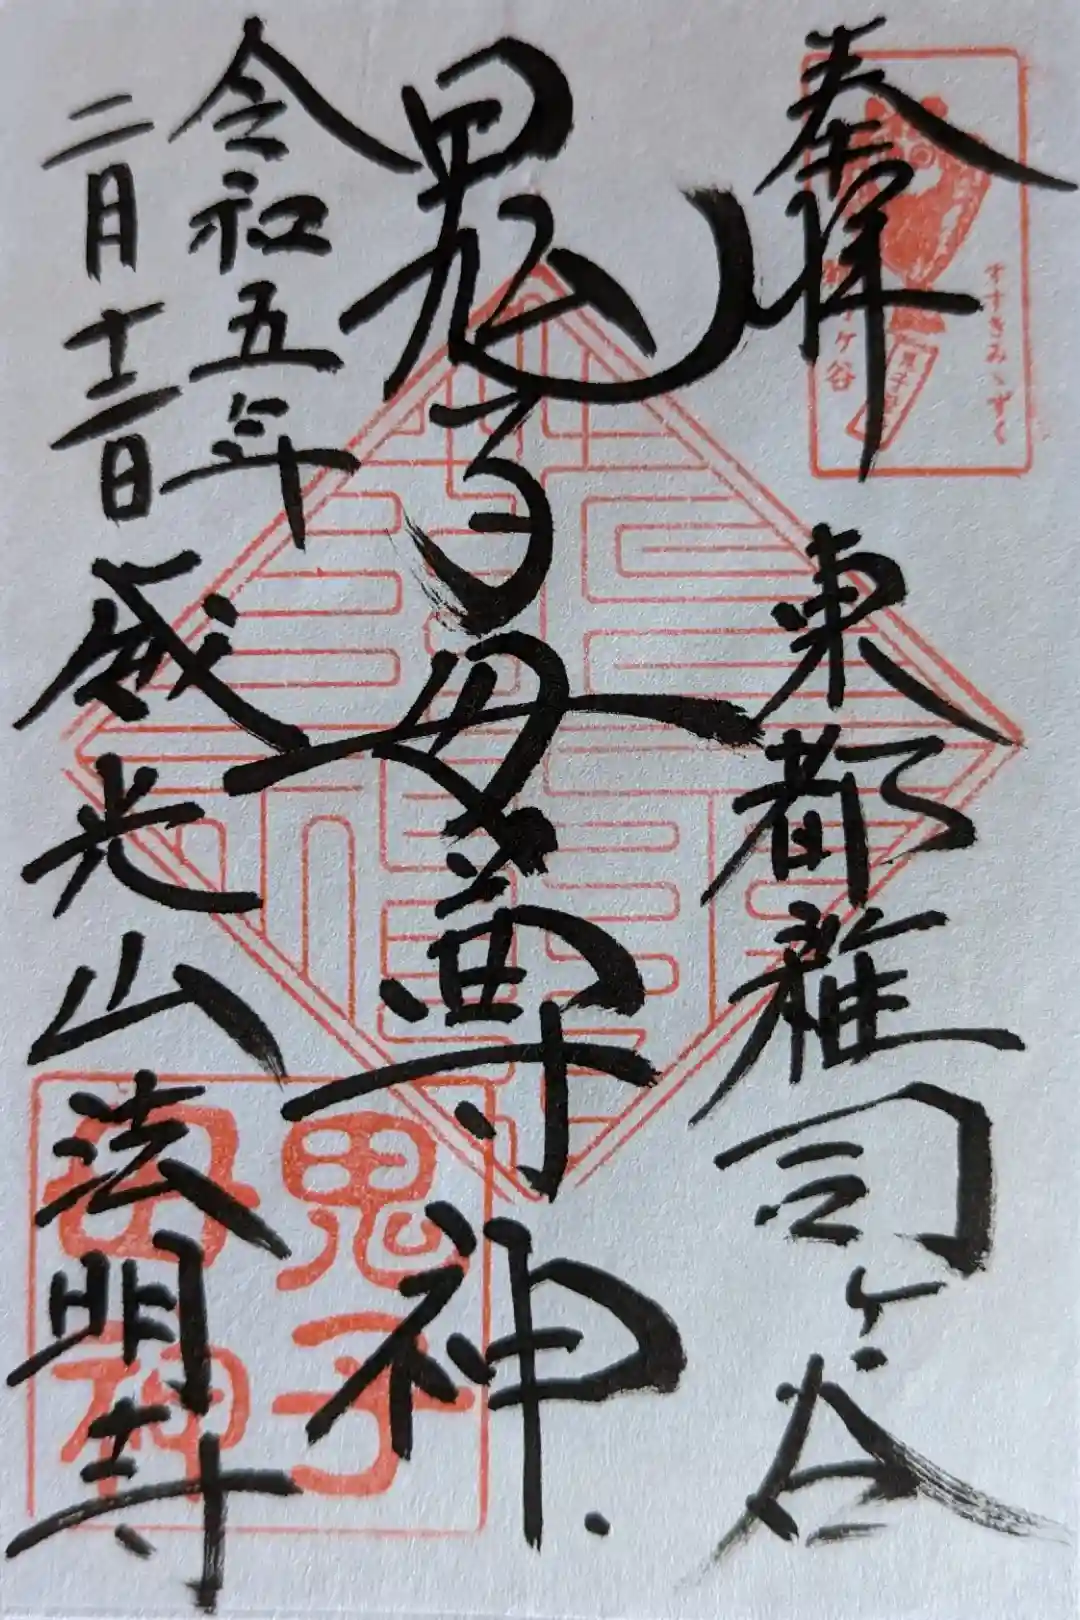 奉拝
東都雑司ヶ谷
鬼子母尊神
令和五年
二月十二日
威光山法明寺
すすきみゝずく
雑司ケ谷
鬼子母神